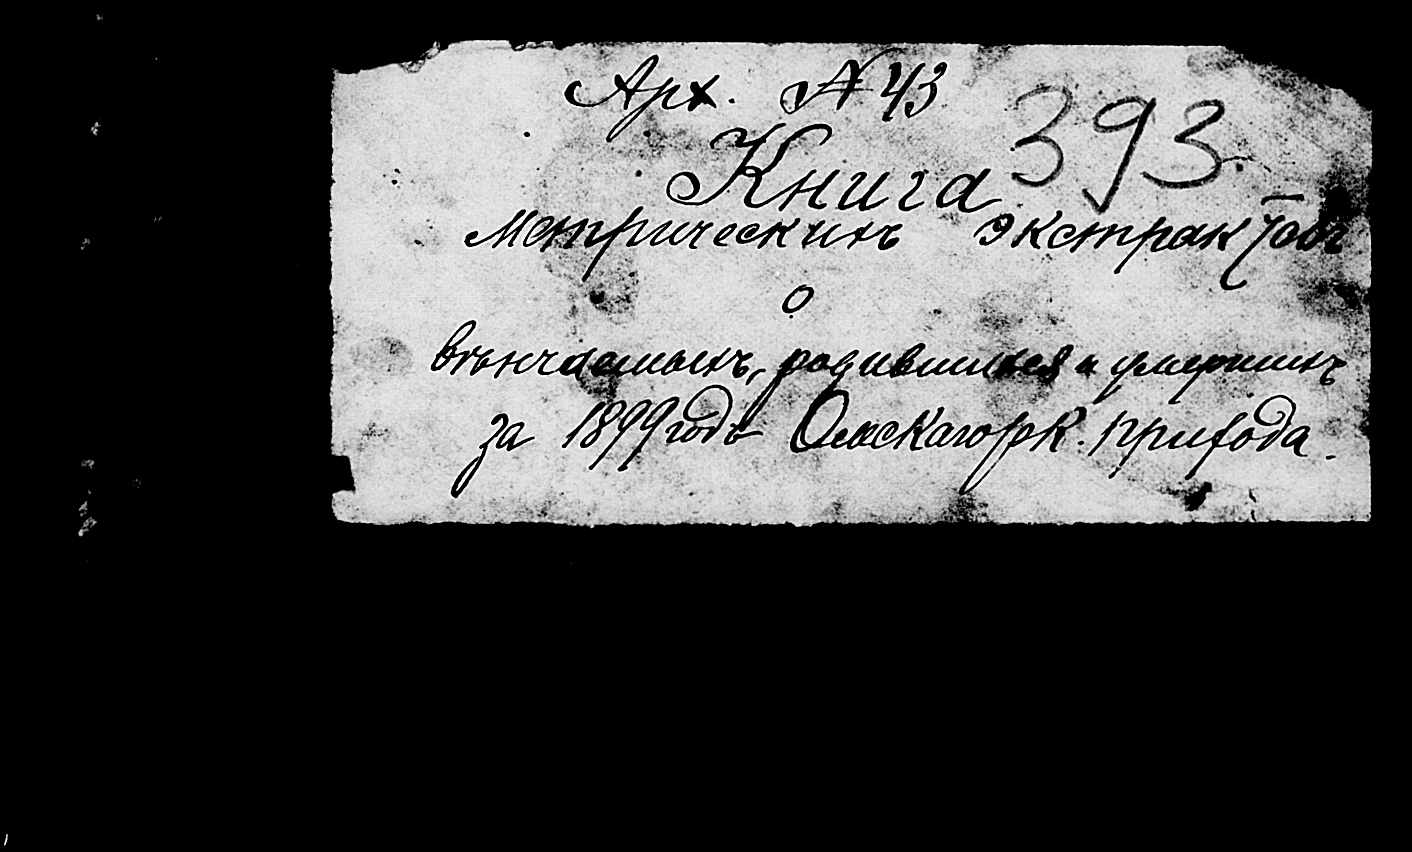 Арх. № 43
393
Книга
метрическихъ экстрактовъ
о
вѣнчаемыхъ, родившихся и умершихъ
за 1899 годъ Омскаго рк. прихода.